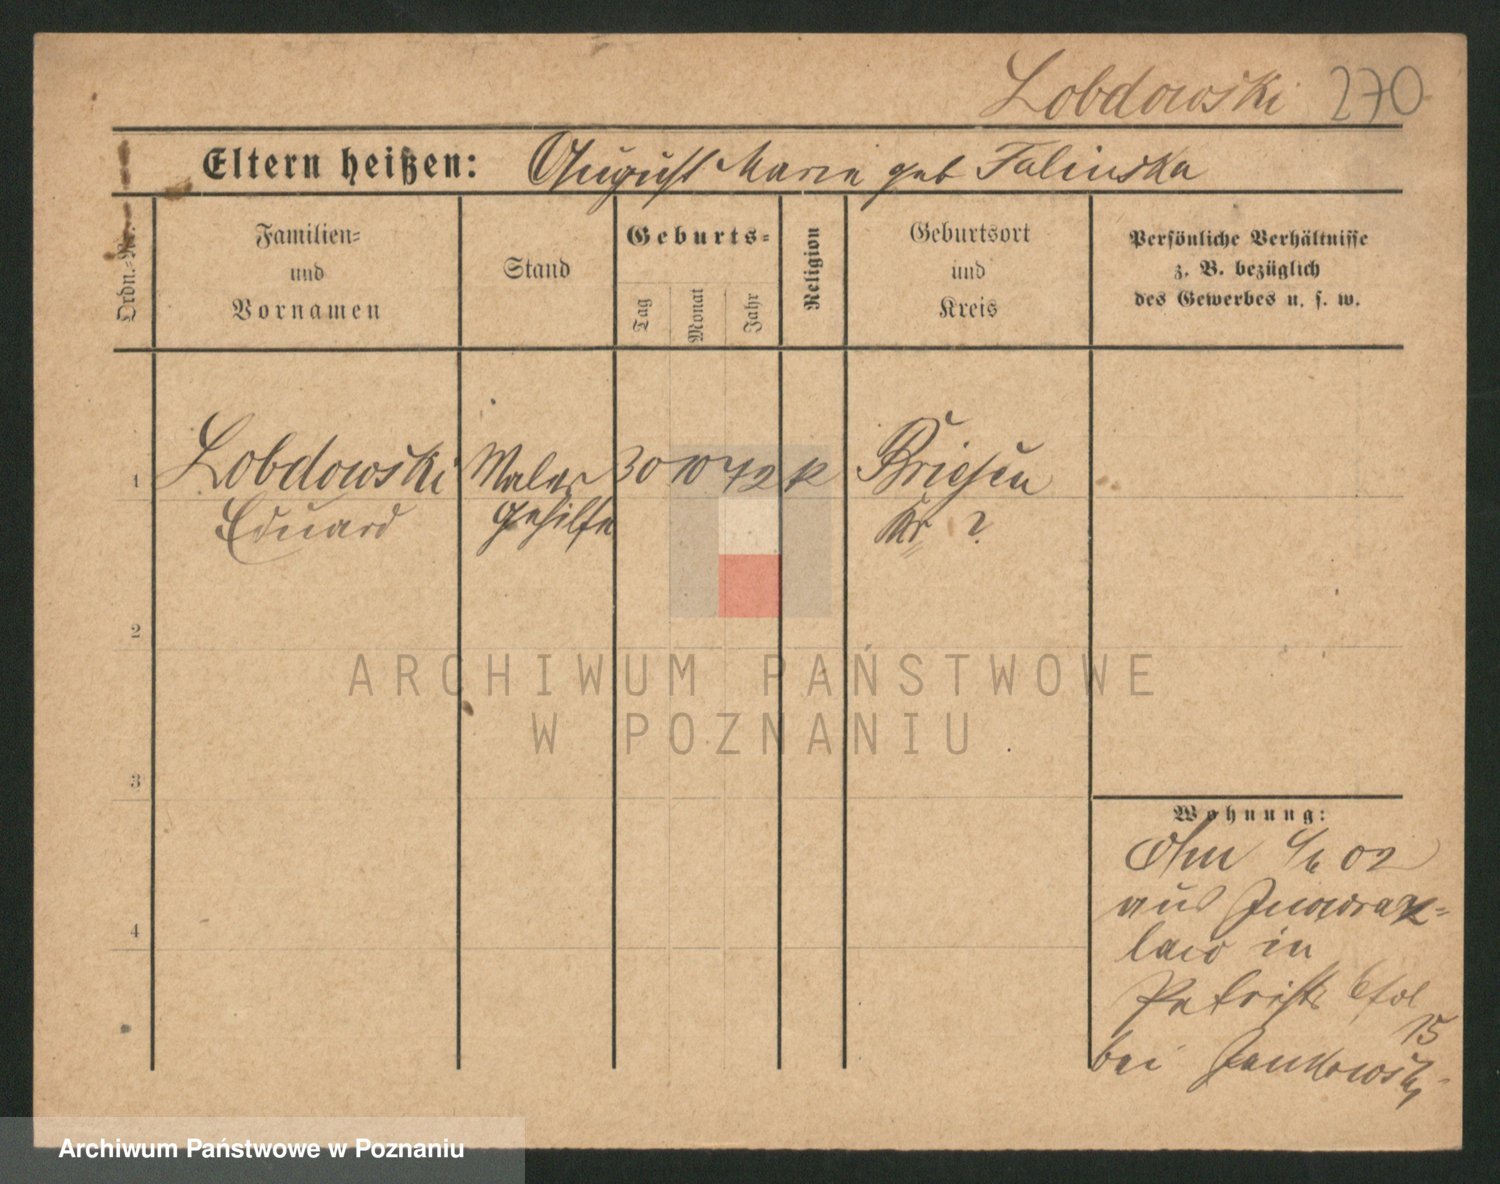 Lobdowski 270
Eltern heißen: August Maria geb Falinska
Ordn.-Nr.
Familien-
und
Vornamen
Stand
Geburts-
Tag
Monat
Jahr
Religion
Geburtsort
und
Kreis
Persönliche Verhältnisse
z. B. bezüglich
des Gewerbes u. s. w.
1 Lobdowski Maler 30 10 72 k Briesen
Eduard Gehilfe Kr ?
2
3
4
Wohnung:
02
aus Inowraz-
law in
15
bei Jankowski
ARCHIWUM PAŃSTWOWE
W POZNANIU
Archiwum Państwowe w Poznaniu